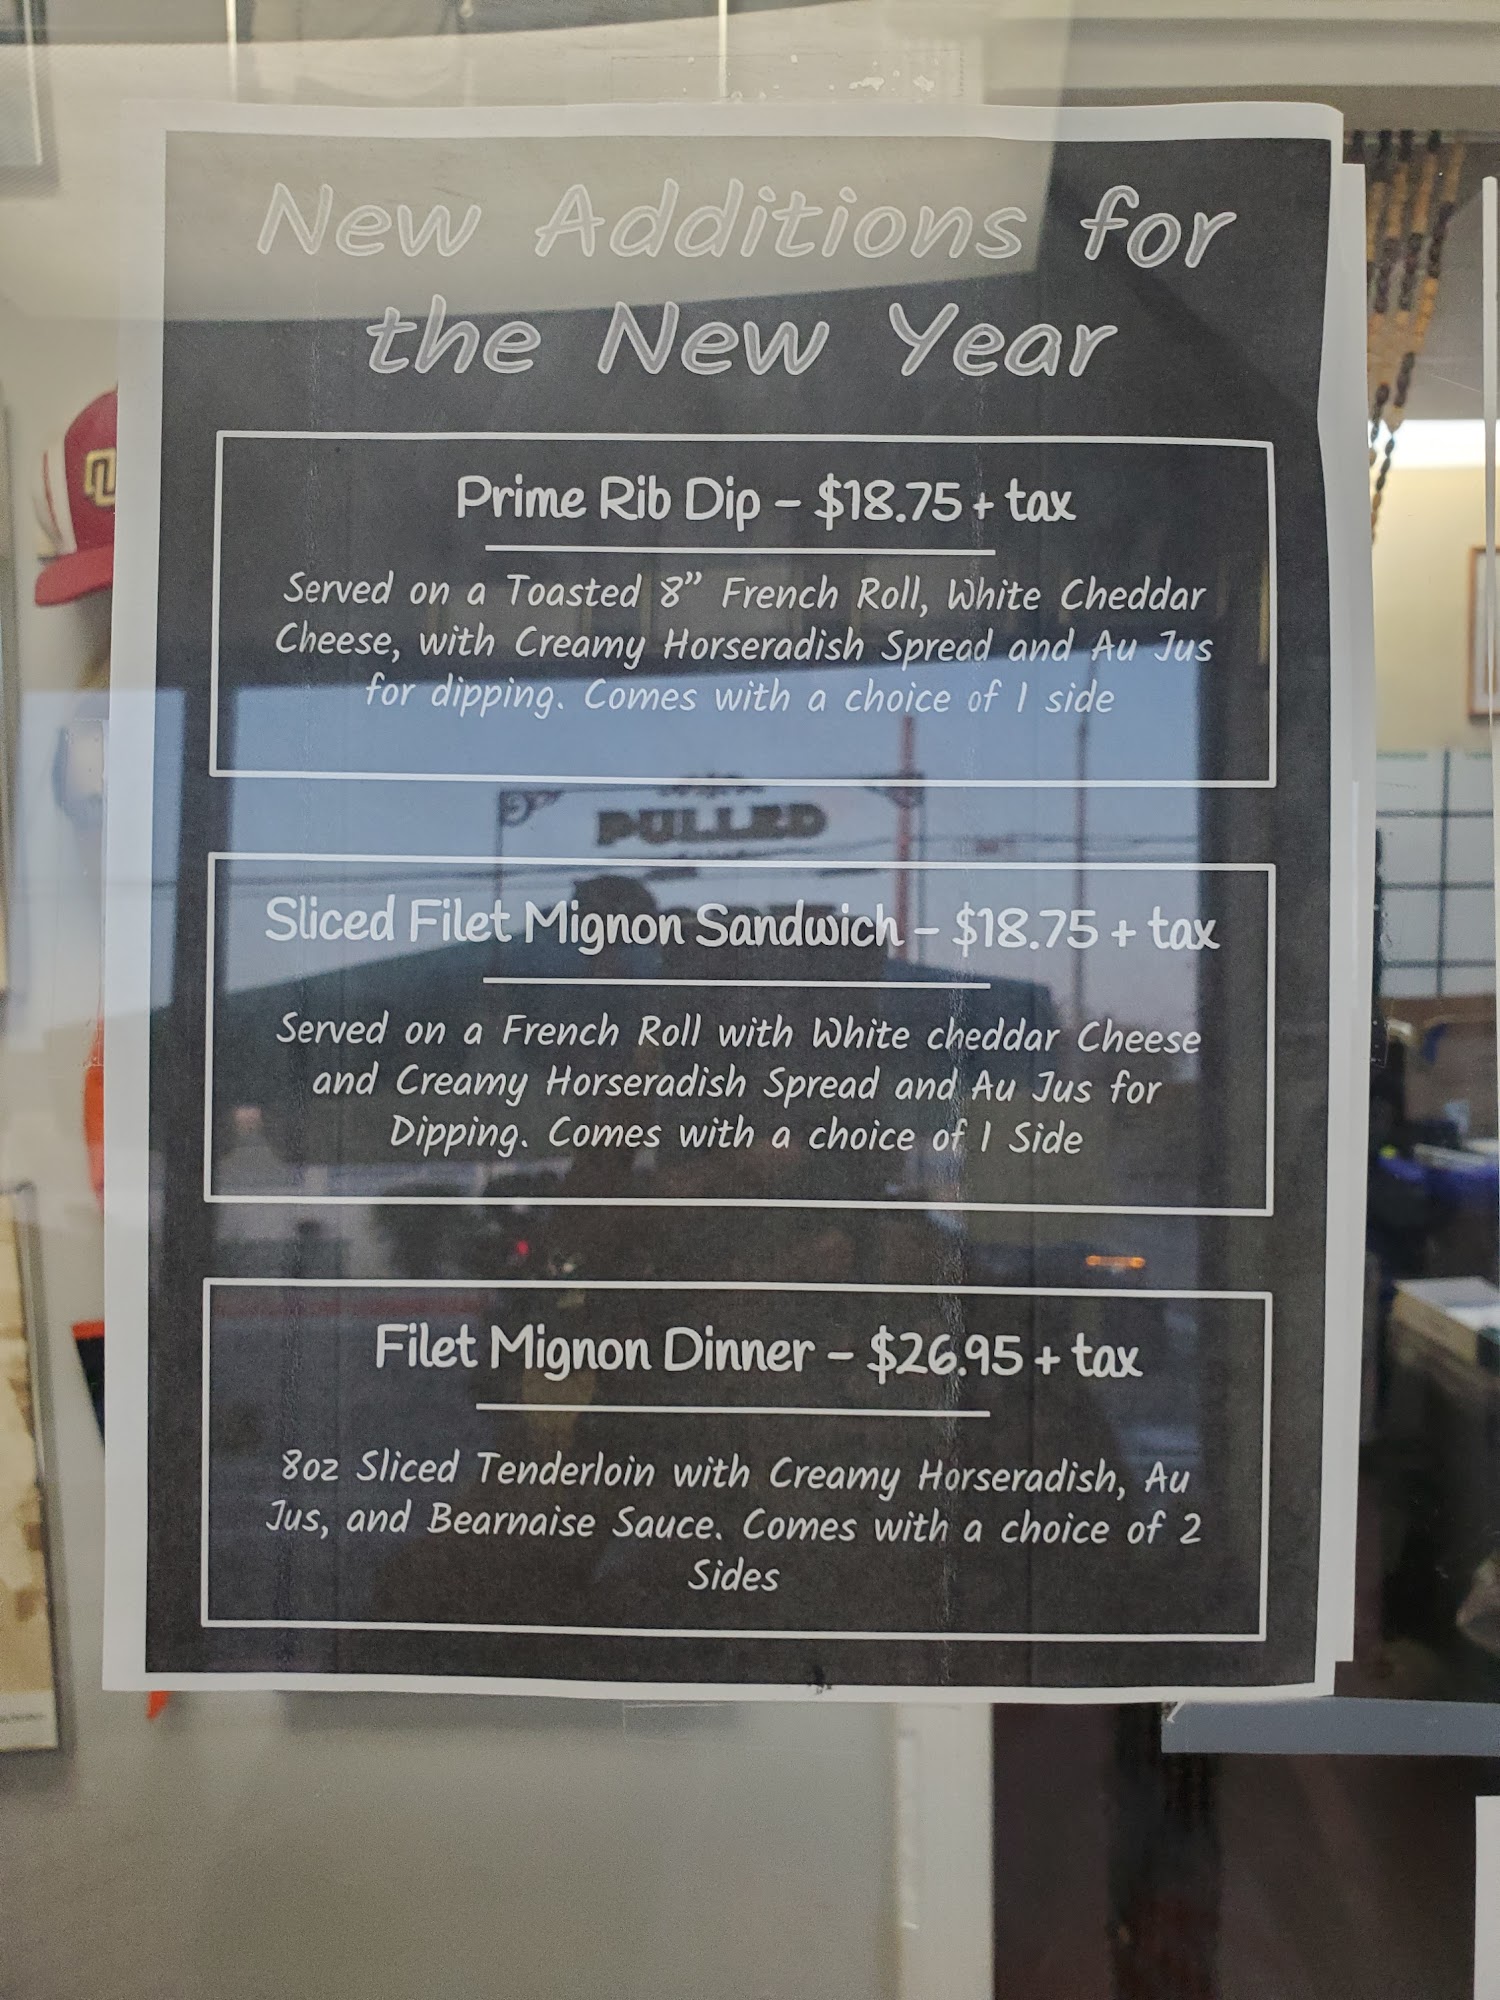 New Additions for
the New Year
Prime Rib Dip – $18.75 + tax
Served on a Toasted 8” French Roll, White Cheddar
Cheese, with Creamy Horseradish Spread and Au Jus
for dipping. Comes with a choice of 1 side
PULLED
Sliced Filet Mignon Sandwich – $18.75 + tax
Served on a French Roll with White cheddar Cheese
and Creamy Horseradish Spread and Au Jus for
Dipping. Comes with a choice of 1 Side
Filet Mignon Dinner – $26.95 + tax
8oz Sliced Tenderloin with Creamy Horseradish, Au
Jus, and Bearnaise Sauce. Comes with a choice of 2
Sides